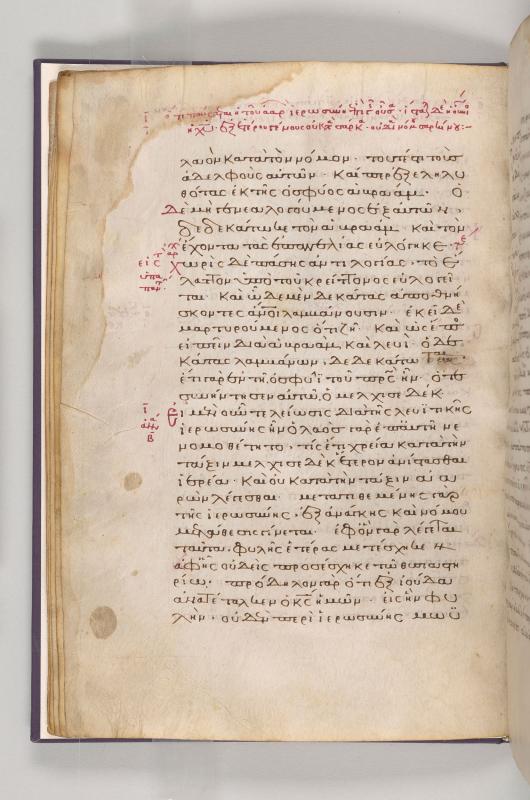 ἱερωσύνη
ἡ χυ· ἐξ ἑτέρου γένους οὐ κατὰ σάρκα· οὐ διὰ νόμου σαρκίνου:–
λαὸν κατὰ τὸν νόμον· τουτέστι τοὺς
ἀδελφοὺς αὐτῶν· καίπερ ἐξεληλυ
θότας ἐκ τῆς ὀσφύος ἀβραάμ· ὁ
δὲ μὴ γενεαλογούμενος ἐξ αὐτῶν
δεδεκάτωκε τὸν ἀβραάμ· καὶ τὸν
ἔχοντα τὰς ἐπαγγελίας εὐλόγηκε·
χωρὶς δὲ πάσης ἀντιλογίας· τὸ ἔ
λαττον ὑπὸ τοῦ κρείττονος εὐλογεῖ
ται· καὶ ὧδε μὲν δεκάτας ἀποθνή
σκοντες ἄνοι λαμβάνουσιν· ἐκεῖ δὲ
μαρτυρούμενος ὅτι ζῇ· καὶ ὡς ἔπος
εἰπεῖν διὰ ἀβραὰμ καὶ λευὶ ὁ δε
κάτας λαμβάνων, δεδεκάτωται·
ἔτι γὰρ ἐν τῇ ὀσφύϊ τοῦ πρς ἦν· ὅτε
συνήντησεν αὐτῷ ὁ μελχισεδέκ
Εἰ μὲν οὖν τελείωσις διὰ τῆς λευϊτικῆς
ἱερωσύνης ἦν· ὁ λαὸς γὰρ ἐπ' αὐτῇ νε
νομοθέτητο· τίς ἔτι χρεία κατὰ τὴν
τάξιν μελχισεδὲκ ἕτερον ἀνίστασθαι
ἱερέα· καὶ οὐ κατὰ τὴν τάξιν ἀα
ρὼν λέγεσθαι· μετατιθεμένης γὰρ
τῆς ἱερωσύνης, ἐξ ἀνάγκης καὶ νόμου
μετάθεσις γίνεται· ἐφ' ὃν γὰρ λέγεται
ταῦτα· φυλῆς ἑτέρας μετέσχηκε
ἀφ' ἧς οὐδεὶς προσέσχηκε τῷ θυσιαστη
ρίῳ· πρόδηλον γὰρ ὅτι ἐξ ἰούδα
ἀνατέταλκεν ὁ κς ἡμῶν· εἰς ἣν φυ
λὴν· οὐδὲν περὶ ἱερωσύνης μωϋ